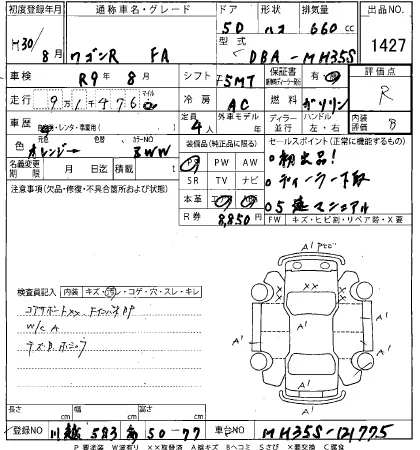 初度登録年月 通称車名・グレード ドア 形状 排気量 出品NO.
H30/8月 ワゴンR FA 5D ハコ 660cc 1427
型式 DBA-MH35S
車検 R9年8月 シフト F5MT 保証書 有 評価点 R
走行 91476 マイル 冷房 AC 燃料 ガソリン
車歴 自家用・レンタ・事業用( ) 定員 4人 外車モデル ディーラー 並行 ハンドル 左・右 内装評価 B
色 オレンジ→ 色替 カラーNO ZWW 装備品(純正品に限る) セールスポイント(正常に機能するもの)
名義変更期限 月 日迄 積載 t PS PW AW ○初出品!
注意事項(欠品・修復・不具合箇所および状態) SR TV ナビ ○ディーラー下取
本革 エアB ○5速マニュアル
R券 8,850円 FW キズ・ヒビ割・リペア跡・X要
A1
検査員記入 内装 キズ・汚レ・コゲ・穴・スレ・キレ
コアサポートXX
W/C A
XX
A1 A1
A1 A1
長さ cm 幅 cm 高さ cm
登録NO 川越 583 50-77 車台NO MH35S-121775
P要塗装 W波有り XX取替済 A線キズ Bヘコミ Sさび X要交換 C腐食